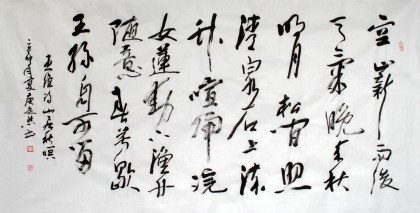 空山新雨後
天氣晚来秋
明月松間照
清泉石上流
竹喧歸浣
女蓮動下漁舟
随意春芳歇
王孫自可留
王維詩山居秋暝
辛卯夏